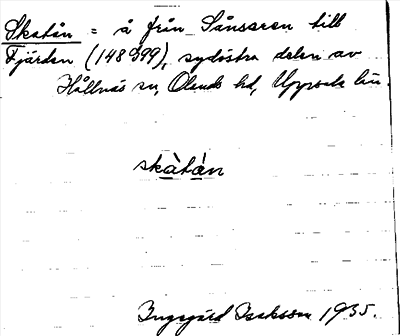 Skatån = å från Sånssren till
Fjärden (148 899), sydöstra delen av
Hållnäs sn, Olands hd, Uppsala län.
skàtán
Ingegärd Isaksson 1935.